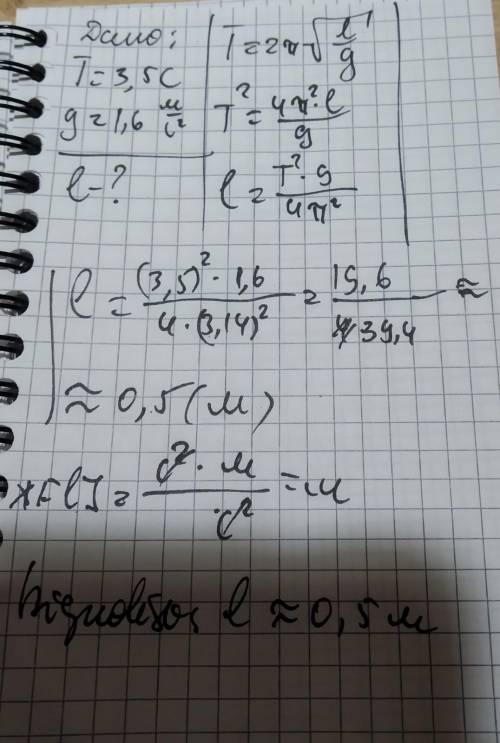 Дано:
T=3,5с
g=1,6 м/с²
l-?
T=2π√(l/g)
T²=4π²·l/g
l=T²·g/4π²
l=(3,5)²·1,6/4·(3,14)²=19,6/39,4≈
≈0,5(м)
*[l]=с²·м/с²=м
l≈0,5м